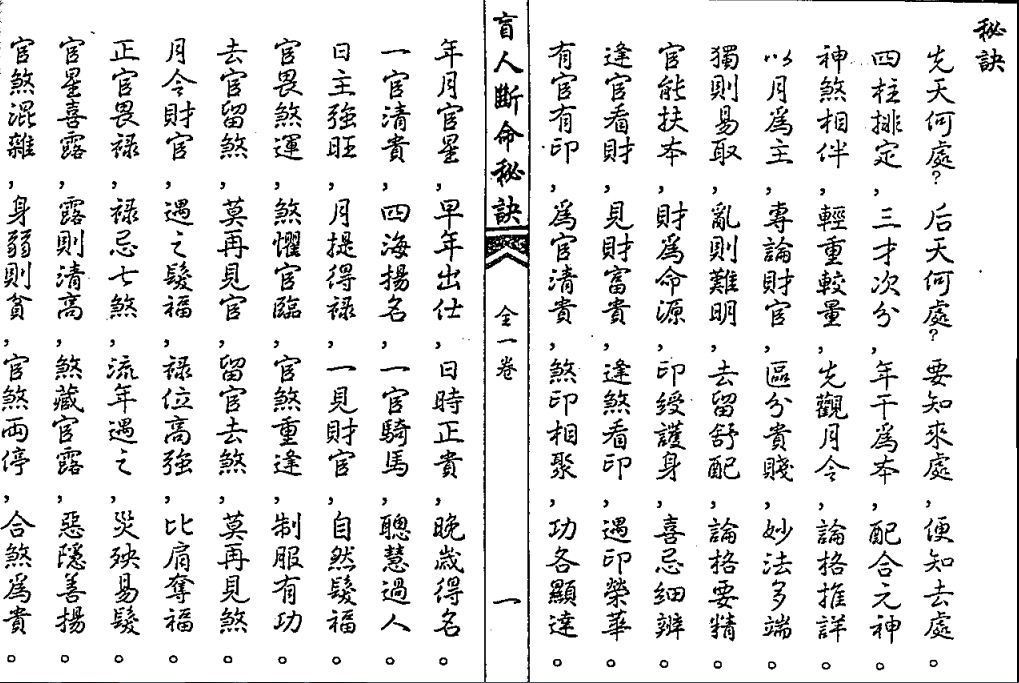 秘訣
先天何處？后天何處？要知來處，便知去處。
四柱排定，三才次分，年干爲本，配合元神。
神煞相伴，輕重較量，先觀月令，論格推詳。
以月爲主，專論財官，區分貴賤，妙法多端。
獨則易取，亂則難明，去留舒配，論格要精。
官能扶本，財爲命源，印綬護身，喜忌細辨。
逢官看財，見財富貴，逢煞看印，遇印榮華。
有官有印，爲官清貴，煞印相聚，功各顯達。
盲人斷命秘訣 全一卷 一
年月官星，早年出仕，日時正貴，晚歲得名。
一官清貴，四海揚名，一官騎馬，聰慧過人。
日主強旺，月提得祿，一見財官，自然髮福。
官畏煞運，煞懼官臨，官煞重逢，制服有功。
去官留煞，莫再見官，留官去煞，莫再見煞。
月令財官，遇之髮福，祿位高強，比肩奪福。
正官畏祿，祿忌七煞，流年遇之，災殃易髮。
官星喜露，露則清高，煞藏官露，惡隱善揚。
官煞混雜，身弱則貧，官煞兩停，合煞爲貴。